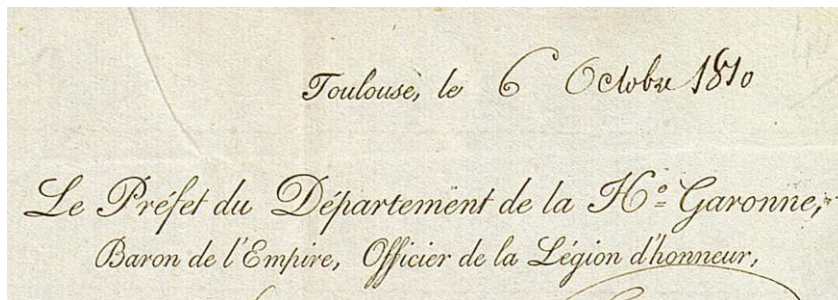 Toulouse, le 6 Octobre 1810
Le Préfet du Département de la H.º Garonne,
Baron de l'Empire, Officier de la Légion d'honneur,